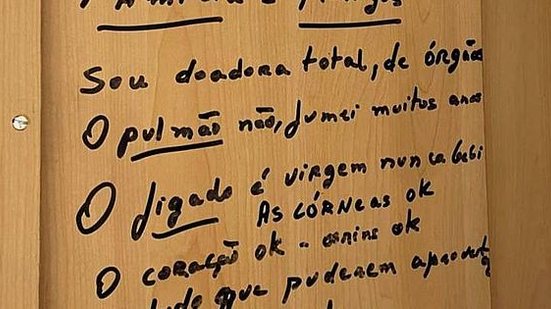 Família e Amigos
Sou doadora total, de órgãos
O pulmão não, fumei muitos anos
O fígado é virgem nunca bebi
As córneas ok
O coração ok - os rins ok
tudo que puderem aproveitar